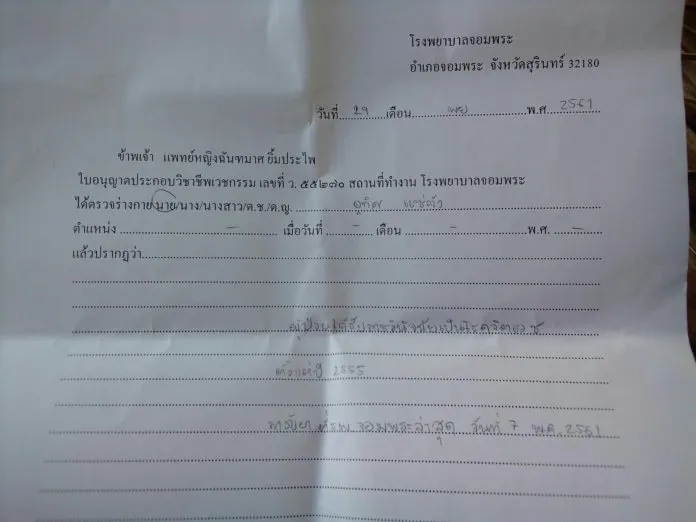 โรงพยาบาลจอมพระ
อำเภอจอมพระ จังหวัดสุรินทร์ 32180
วันที่ 29 เดือน พย พ.ศ 2561
ข้าพเจ้า แพทย์หญิงฉันฑมาศ ยิ้มประไพ
ใบอนุญาตประกอบวิชาชีพเวชกรรม เลขที่ ว. ๕๕๒๗๐ สถานที่ทำงาน โรงพยาบาลจอมพระ
ได้ตรวจร่างกาย นาย/นาง/นางสาว/ด.ช./ด.ญ.
ตำแหน่ง - เมื่อวันที่ - เดือน - พ.ศ. -
แล้วปรากฏว่า
ผู้ป่วยได้รับการวินิจฉัยเป็นโรคจิตเวช
ตั้งแต่ปี 2555
ที่ รพ จอมพระล่าสุด วันที่ 7 พ.ค. 2561